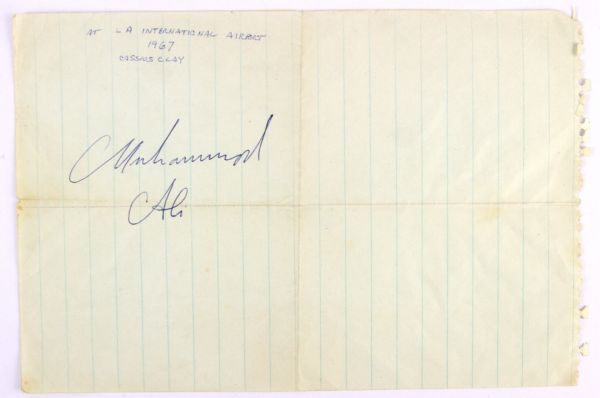 AT LA INTERNATIONAL AIRPORT
1967
CASSIUS CLAY
Muhammad
Ali